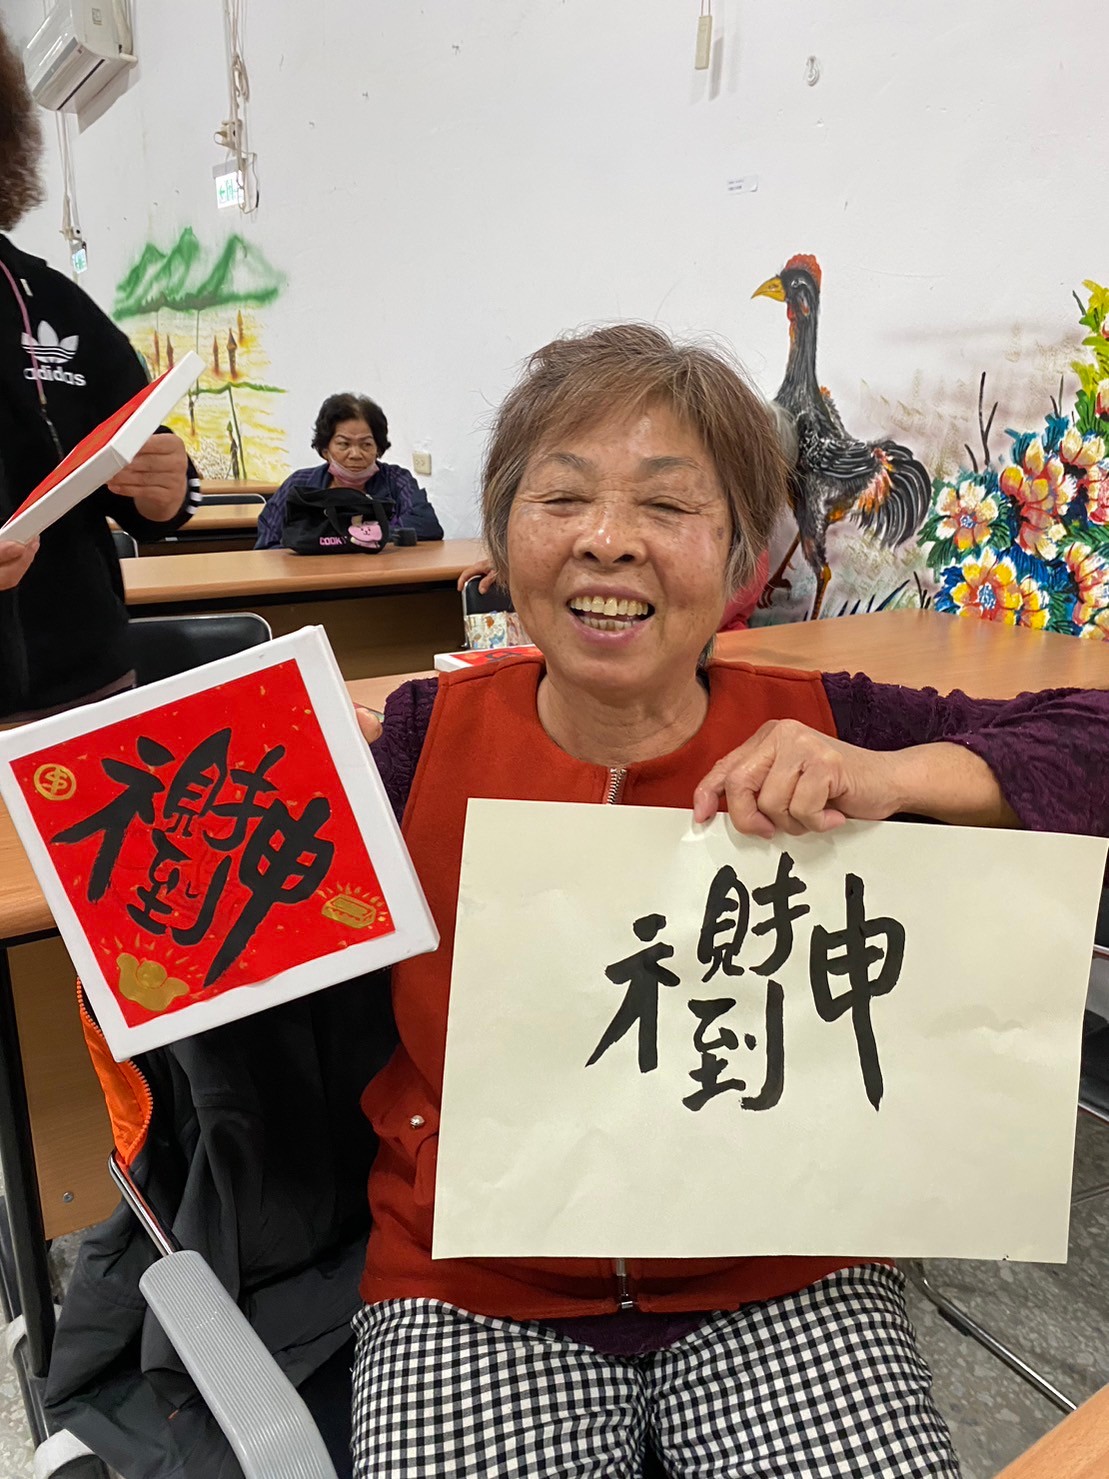 adidas
COOK
財神到
財神到
$